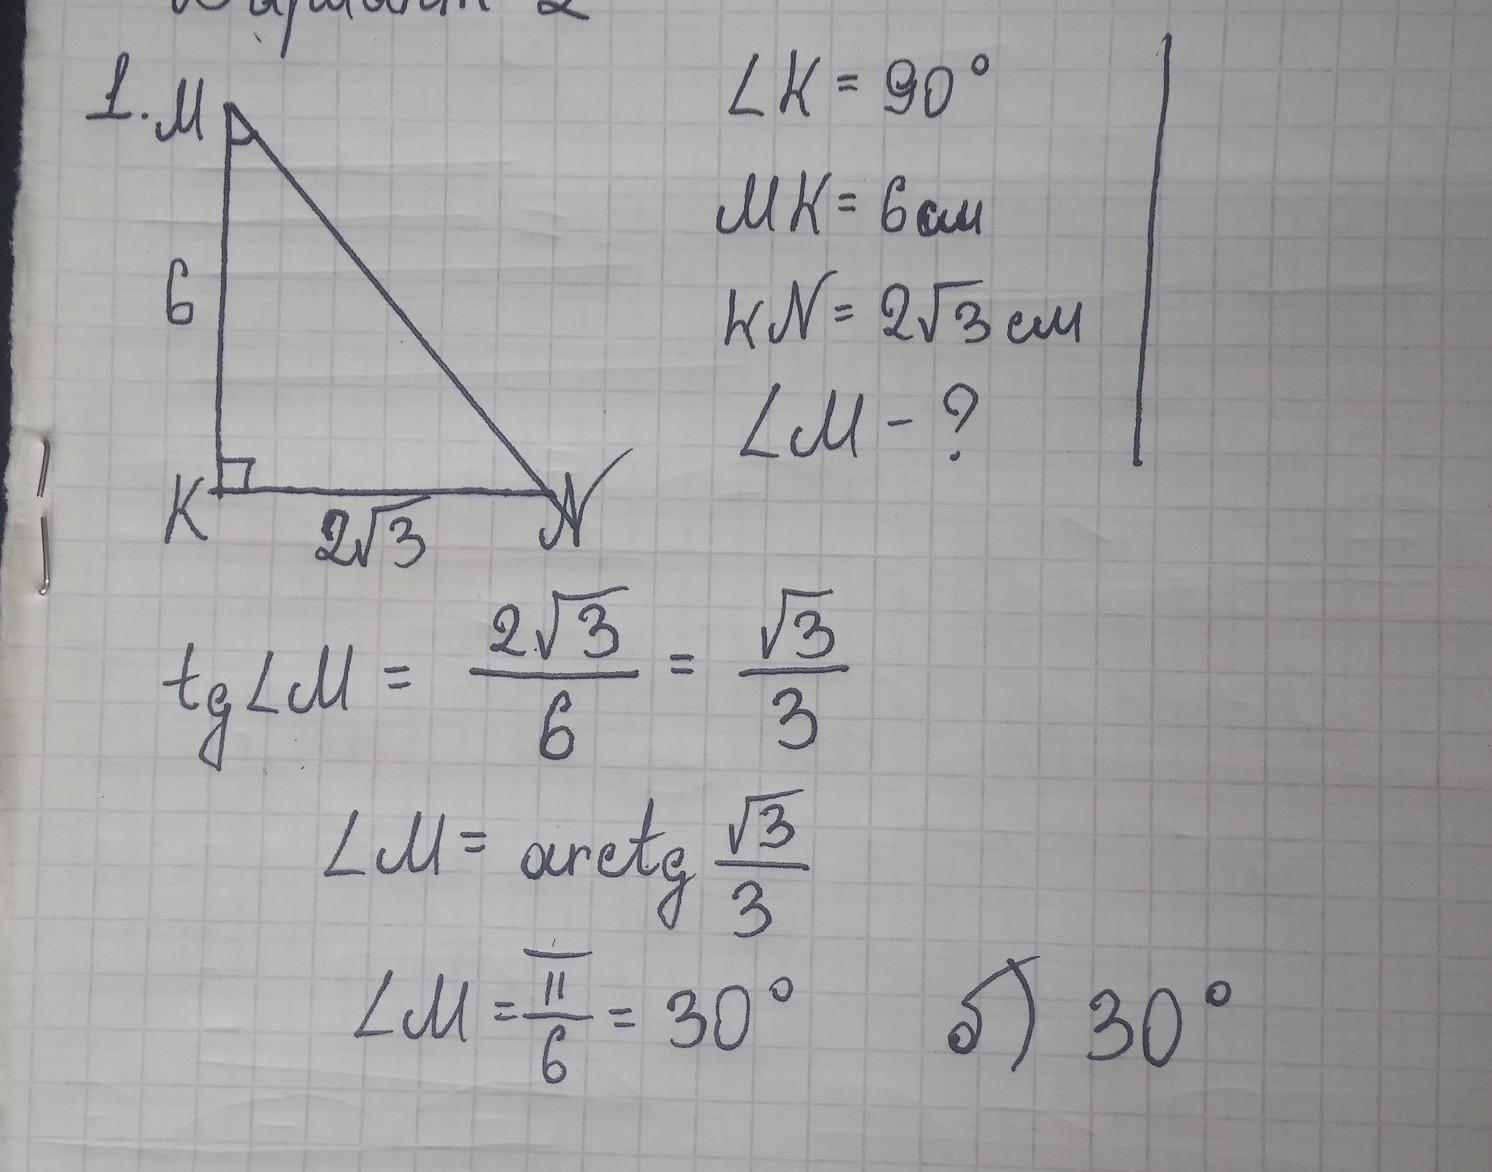 Вариант 2
1. M
∠K = 90°
MK = 6 см
6
KN = 2√3 см
∠M - ?
K
2√3
N
tg∠M = 2√3/6 = √3/3
∠M = arctg √3/3
∠M = π/6 = 30°
б) 30°